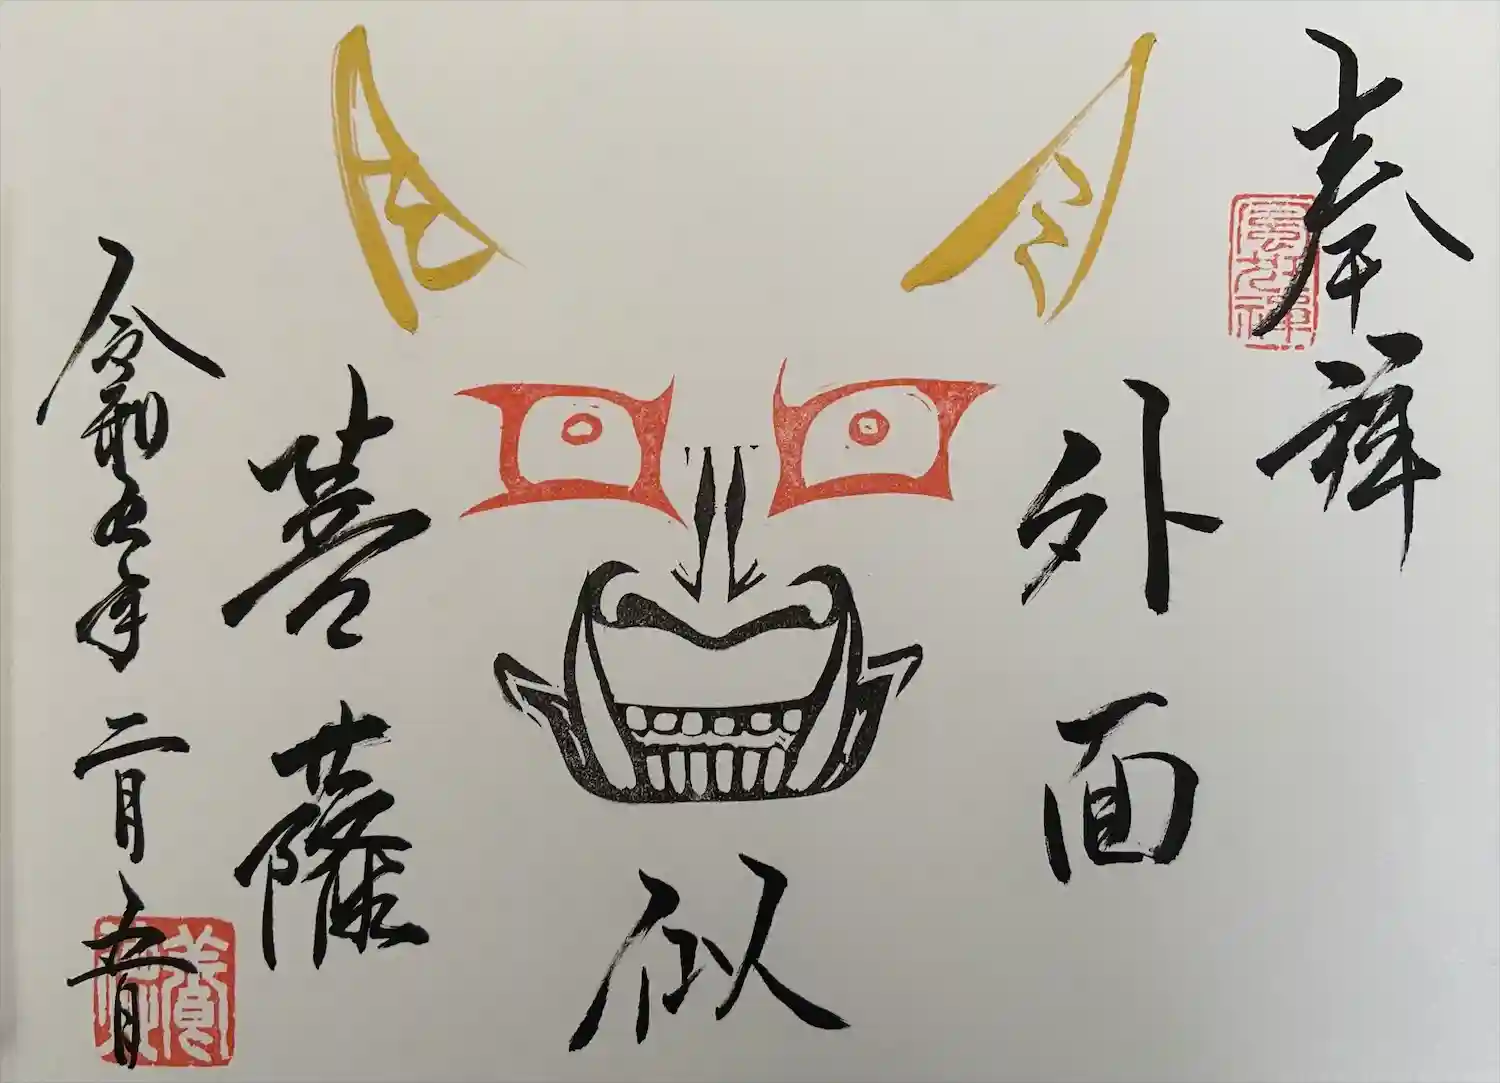 奉拝
外面
似
菩薩
令和五年二月五日